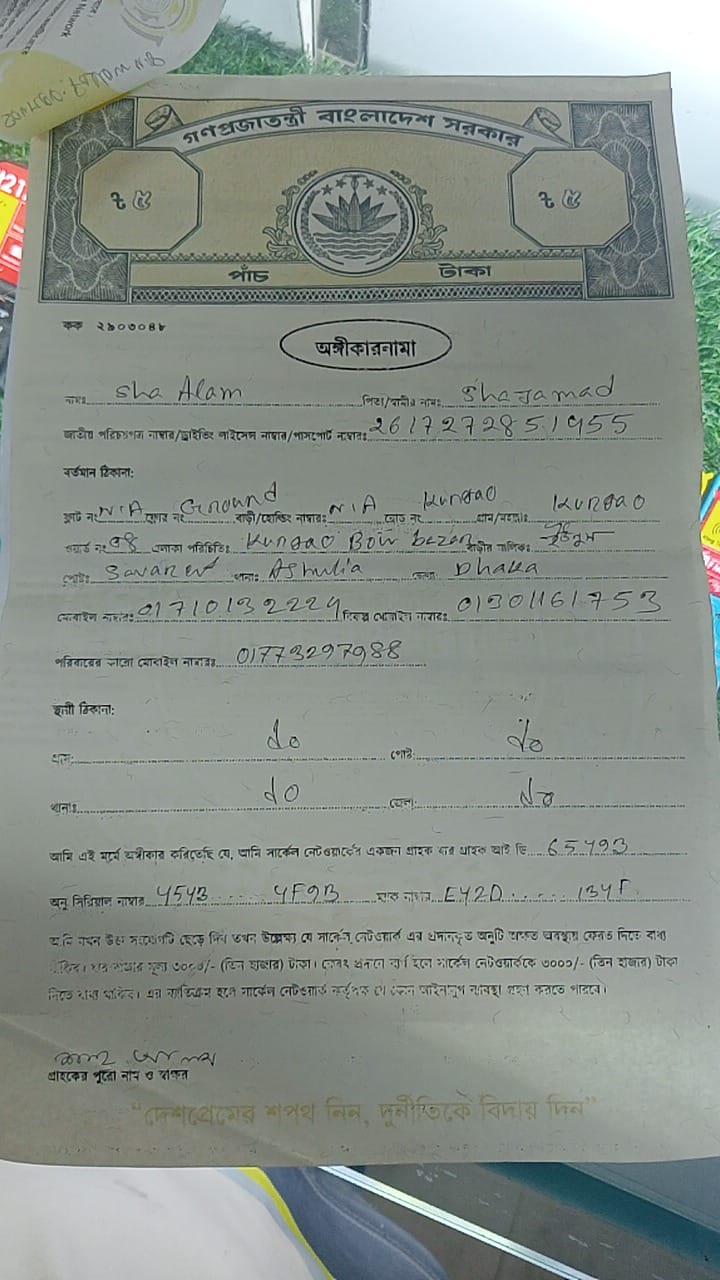 গণপ্রজাতন্ত্রী বাংলাদেশ সরকার
৳ ৫
৳ ৫
পাঁচ টাকা
কক ২৯০৩০৪৮
অঙ্গীকারনামা
নামঃ Sha Alam পিতা/স্বামীর নামঃ
জাতীয় পরিচয়পত্র নাম্বার/ড্রাইভিং লাইসেন্স নাম্বার/পাসপোর্ট নাম্বারঃ 2617272851955
বর্তমান ঠিকানা:
ফ্লাট নং N/A ফ্লোর নং Ground বাড়ী/হোল্ডিং নাম্বারঃ N/A রোড নং Kungao গ্রাম/মহল্লাঃ Kungao
ওয়ার্ড নং 08 এলাকা পরিচিতিঃ Kungao Bow bazar বাড়ীর মালিকঃ
পোষ্টঃ থানাঃ Ashulia জেলাঃ Dhaka
মোবাইল নাম্বারঃ 01710132224 বিকল্প মোবাইল নাম্বারঃ 01301161753
পরিবারের কারো মোবাইল নাম্বারঃ 01773297988
স্থায়ী ঠিকানা:
গ্রাম: do পোষ্ট: do
থানাঃ do জেলা: do
আমি এই মর্মে অঙ্গীকার করিতেছি যে, আমি সার্কেল নেটওয়ার্কের একজন গ্রাহক যার গ্রাহক আই ডি 65493
অনু সিরিয়াল নাম্বার 4543 ..... 4F9B ম্যাক নাম্বার E42D ..... 134F
আমি যখন উক্ত সংযোগটি ছেড়ে দিব তখন উল্লেখ্য যে সার্কেল নেটওয়ার্ক এর প্রদানকৃত অনুটি অক্ষত অবস্থায় ফেরত দিতে বাধ্য
থাকিব। যার বাজার মূল্য ৩০০০/- (তিন হাজার) টাকা। ফেরৎ প্রদানে ব্যর্থ হলে সার্কেল নেটওয়ার্ককে ৩০০০/- (তিন হাজার) টাকা
দিতে বাধ্য থাকিব। এর ব্যতিক্রম হলে সার্কেল নেটওয়ার্ক কর্তৃপক্ষ যে কোন আইনানুগ ব্যবস্থা গ্রহণ করতে পারবে।
গ্রাহকের পুরো নাম ও স্বাক্ষর
“দেশপ্রেমের শপথ নিন, দুর্নীতিকে বিদায় দিন”